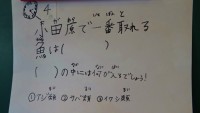 4
小田原で一番取れる
魚は(　　　)
(　)の中には何が入るでしょう!
①アジ ②サバ ③イワシ